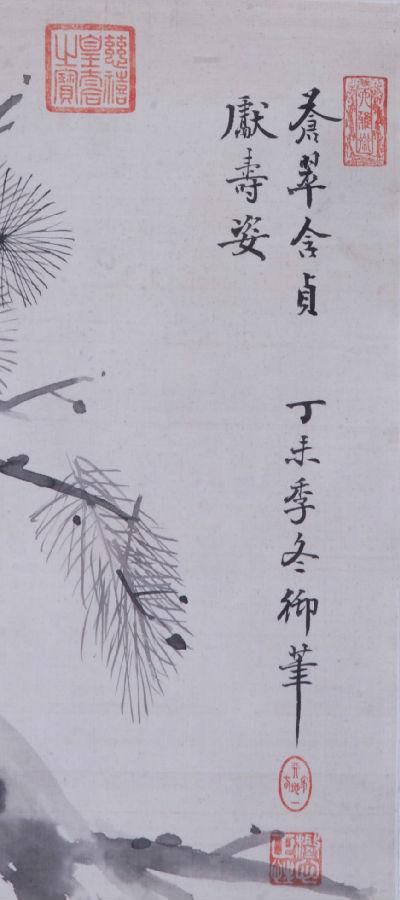 大雅齋
蒼翠含貞
獻壽姿
丁未季冬御筆
天地一家春
慈禧
皇太后
之寶